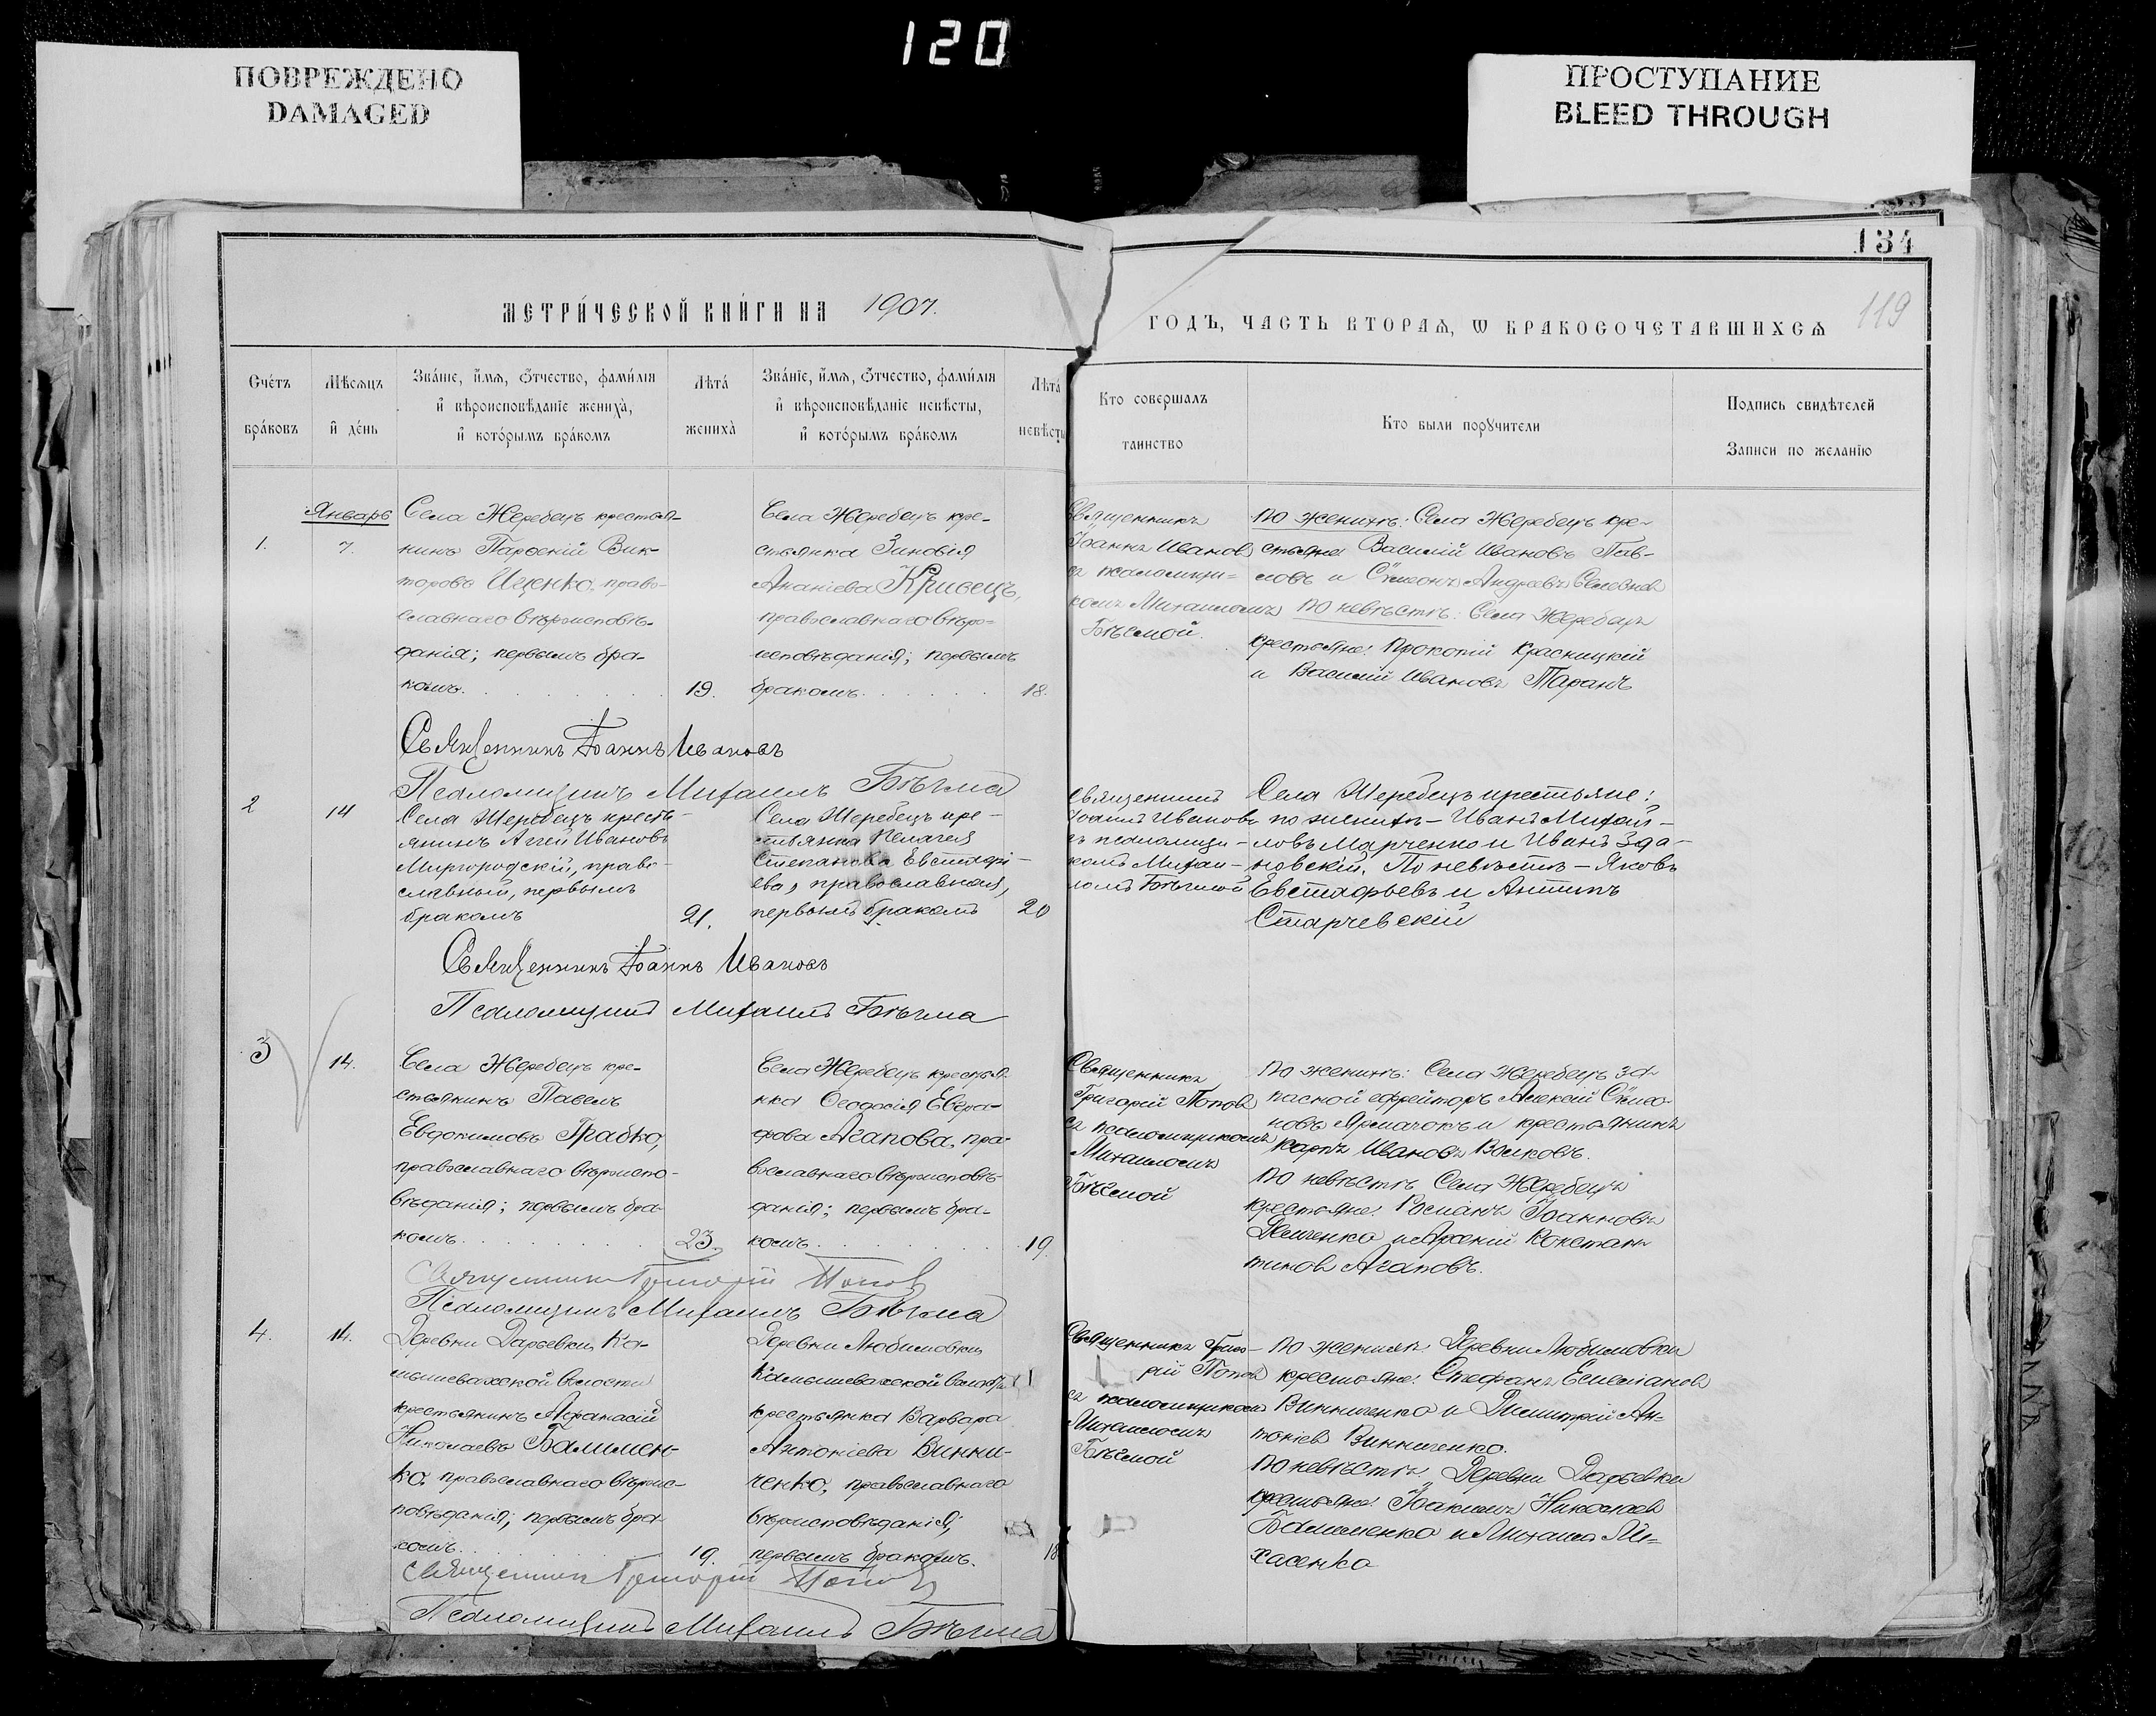 120
ПОВРЕЖДЕНО
DAMAGED
ПРОСТУПАНИЕ
BLEED THROUGH
134
119
МЕТРИ́ЧЕСКОЙ КНИ́ГИ НА 1907.
ГОДЪ, ЧАСТЬ ВТОРАѦ, Ѡ БРАКОСОЧЕТАВШИХСѦ
Сче́тъ
бра́ковъ
Мѣсѧцъ
и҆ де́нь
Зва́ніе, и҆́мѧ, ѻ҆́тчество, фами́лія
и҆ вѣроисповѣданіе жениха̀,
и҆ кото́рымъ бра́комъ
Лѣта́
жениха̀
Зва́ніе, и҆́мѧ, ѻ҆́тчество, фами́лія
и҆ вѣроисповѣданіе невѣсты,
и҆ кото́рымъ бра́комъ
Лѣта́
невѣсты
Кто совершалъ
таинство
Кто были порꙋчители
Подпись свидѣтелей
Записи по желанію
Январь
1.
7.
Села Жеребецъ крестья-
нинъ Парѳеній Вик-
торовъ Ищенко, право-
славнаго вѣроисповѣ-
данія; первымъ бра-
комъ. 19.
Села Жеребецъ кре-
стьянка Зиновія
Ананіева Кривецъ,
православнаго вѣро-
исповѣданія; первымъ
бракомъ. 18.
Священникъ
Іоаннъ Ивановъ
съ псаломщи-
комъ Михаиломъ
Бѣгмой.
По женихѣ: Села Жеребецъ кре-
стьяне: Василій Ивановъ Пав-
ловъ и Сѵмеонъ Андреевъ
По невѣстѣ: Села Жеребецъ
крестьяне: Прокопій Красницкій
и Василій Ивановъ Таранъ
Священникъ Іоаннъ Ивановъ
Псаломщикъ Михаилъ Бѣгма
2
14
Села Жеребецъ кресть-
янинъ Аггей Ивановъ
Миргородскій, право-
славный, первымъ
бракомъ 21.
Села Жеребецъ кре-
стьянка Пелагея
Степанова Евстафі-
ева, православная,
первымъ бракомъ 20
Священникъ
Іоаннъ Ивановъ
съ псаломщи-
комъ Михаи-
ломъ Бѣгмой
Села Жеребецъ крестьяне:
по женихѣ - Иванъ Михай-
ловъ Марченко и Иванъ Зда-
новскій. По невѣстѣ - Яковъ
Евстафьевъ и Антипъ
Старчевскій
Священникъ Іоаннъ Ивановъ
Псаломщикъ Михаилъ Бѣгма
3
14.
Села Жеребецъ кре-
стьянинъ Павелъ
Евдокимовъ Грабко,
православнаго вѣроиспо-
вѣданія; первымъ бра-
комъ. 23.
Села Жеребецъ крестья-
нка Ѳеодосія Евгра-
фова Агапова, пра-
вославнаго вѣроисповѣ-
данія; первымъ бра-
комъ. 19.
Священникъ
Григорій Поповъ
съ псаломщикомъ
Михаиломъ
Бѣгмой
По женихѣ: Села Жеребецъ за-
пасной ефрейторъ Алексій Сѵмео-
новъ Ярмачокъ и крестьянинъ
Карпъ Ивановъ Волковъ.
По невѣстѣ Села Жеребецъ
крестьяне: Романъ Іоанновъ
Демченко и Арсеній Констан-
тиновъ Агаповъ.
Священникъ Григорій Поповъ
Псаломщикъ Михаилъ Бѣгма
4.
14.
Деревни Дарьевки, Ка-
мышевахской волости
крестьянинъ Аѳанасій
Николаевъ Балимен-
ко, православнаго вѣроис-
повѣданія; первымъ бра-
комъ. 19.
Деревни Любимовки
Камышевахской волости
крестьянка Варвара
Антоніева Винни-
ченко, православнаго
вѣроисповѣданія;
первымъ бракомъ. 18
Священникъ Григо-
рій Поповъ
съ псаломщикомъ
Михаиломъ
Бѣгмой
По женихѣ: Деревни Любимовки
крестьяне: Стефанъ Емеліановъ
Винниченко и Димитрій Ан-
тоніевъ Винниченко.
По невѣстѣ: Деревни Дарьевки
крестьяне: Іоакимъ Николаевъ
Балименко и Михаилъ Ми-
хасенко
Священникъ Григорій Поповъ
Псаломщикъ Михаилъ Бѣгма